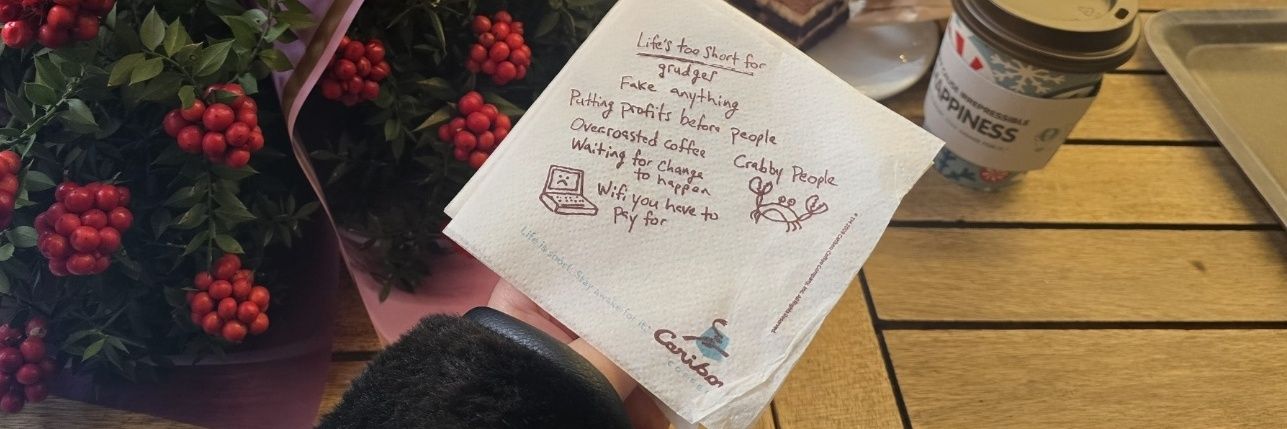 Life's too short for
grudges
Fake anything
Putting profits before people
Overroasted coffee
Crabby People
Waiting for change
to happen
Wifi you have to
pay for
Life is short. Stay awake for it.
Caribou
COFFEE
IRREPRESSIBLE
HAPPINESS